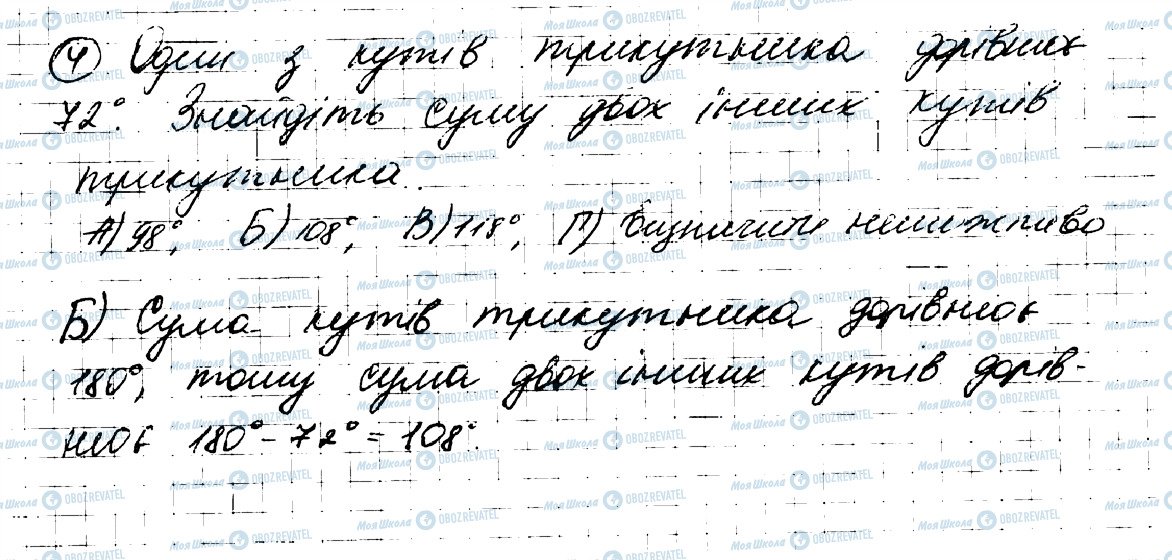 4 Один з кутів трикутника дорівнює
72°. Знайдіть суму двох інших кутів
трикутника.
А) 98°, Б) 108°, В) 118°, Г) визначити неможливо
Б) Сума кутів трикутника дорівнює
180°, тому сума двох інших кутів дорів-
нює 180° - 72° = 108°.